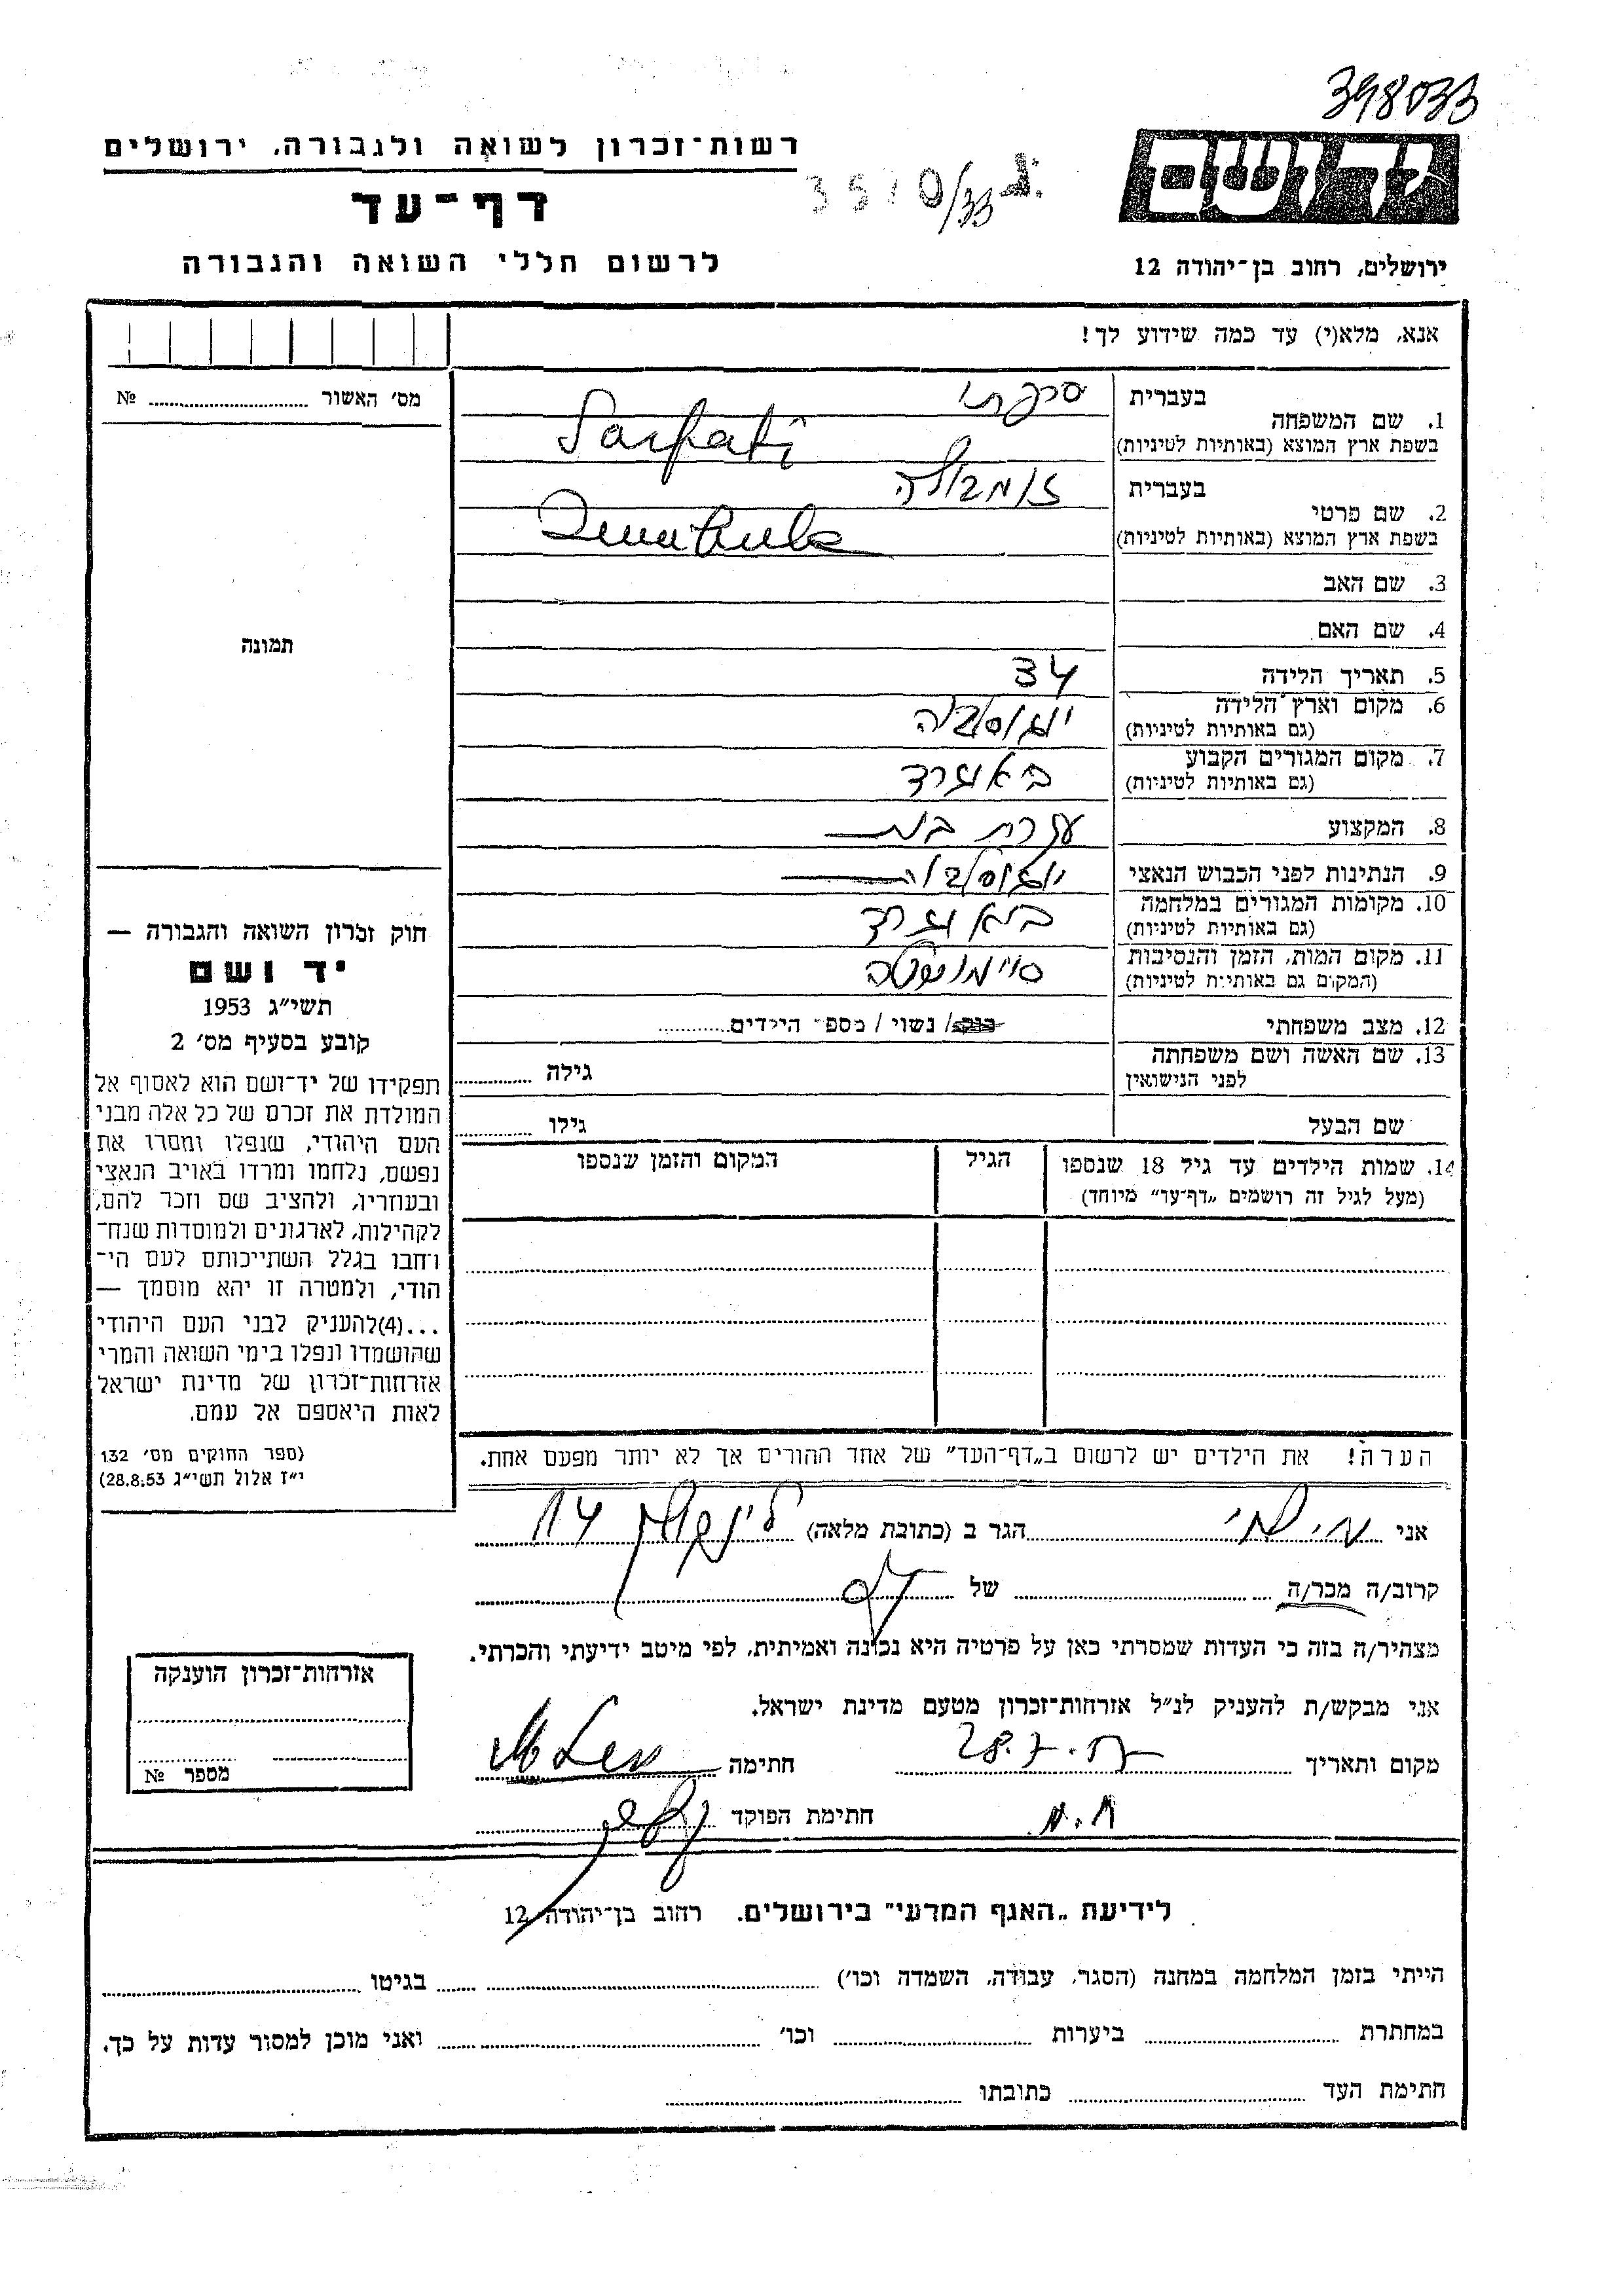 398033
רשות־זכרון לשואה ולגבורה, ירושלים
דף־עד
לרשום חללי השואה והגבורה
יד ושם
ירושלים, רחוב בן־יהודה 12
אנא, מלא(י) עד כמה שידוע לך!
מס׳ האשור № ........
תמונה
1. שם המשפחה בעברית סרפתי
בשפת ארץ המוצא (באותיות לטיניות) Sarfati
2. שם פרטי בעברית זומבולה
בשפת ארץ המוצא (באותיות לטיניות)
3. שם האב
4. שם האם
5. תאריך הלידה 34
6. מקום וארץ הלידה יוגוסלביה
(גם באותיות לטיניות)
7. מקום המגורים הקבוע באוגרד
(גם באותיות לטיניות)
8. המקצוע עקרת בית
9. הנתינות לפני הכבוש הנאצי יוגוסלביה
10. מקומות המגורים במלחמה
(גם באותיות לטיניות)
11. מקום המות, הזמן והנסיבות
(המקום גם באותיות לטיניות)
12. מצב משפחתי רווק / נשוי / מספר הילדים........
13. שם האשה ושם משפחתה גילה ........
לפני הנישואין
שם הבעל גילו ........
14. שמות הילדים עד גיל 18 שנספו הגיל המקום והזמן שנספו
(מעל לגיל זה רושמים „דף־עד” מיוחד)
חוק זכרון השואה והגבורה —
יד ושם
תשי״ג 1953
קובע בסעיף מס׳ 2
תפקידו של יד־ושם הוא לאסוף אל
המולדת את זכרם של כל אלה מבני
העם היהודי, שנפלו ומסרו את
נפשם, נלחמו ומרדו באויב הנאצי
ובעוזריו, ולהציב שם וזכר להם,
לקהילות, לארגונים ולמוסדות שנח־
רחבו בגלל השתייכותם לעם הי־
הודי, ולמטרה זו יהא מוסמך —
...(4)להעניק לבני העם היהודי
שהושמדו ונפלו בימי השואה והמרי
אזרחות־זכרון של מדינת ישראל
לאות היאספם אל עמם.
(ספר החוקים מס׳ 132
י״ז אלול תשי״ג 28.8.53)
הערה! את הילדים יש לרשום ב„דף־העד” של אחד ההורים אך לא יותר מפעם אחת.
אני ........ הגר ב (כתובת מלאה) ........
קרוב/ה מכר/ה ........ של ........
מצהיר/ה בזה כי העדות שמסרתי כאן על פרטיה היא נכונה ואמיתית, לפי מיטב ידיעתי והכרתי.
אני מבקש/ת להעניק לנ״ל אזרחות־זכרון מטעם מדינת ישראל.
מקום ותאריך ........ חתימה ........
ת.א. חתימת הפוקד ........
אזרחות־זכרון הוענקה
מספר №
לידיעת „האגף המדעי” בירושלים, רחוב בן־יהודה 12
הייתי בזמן המלחמה במחנה (הסגר, עבודה, השמדה וכו׳) ........ בגיטו ........
במחתרת ........ ביערות ........ וכו׳ ........ ואני מוכן למסור עדות על כך.
חתימת העד ........ כתובתו ........